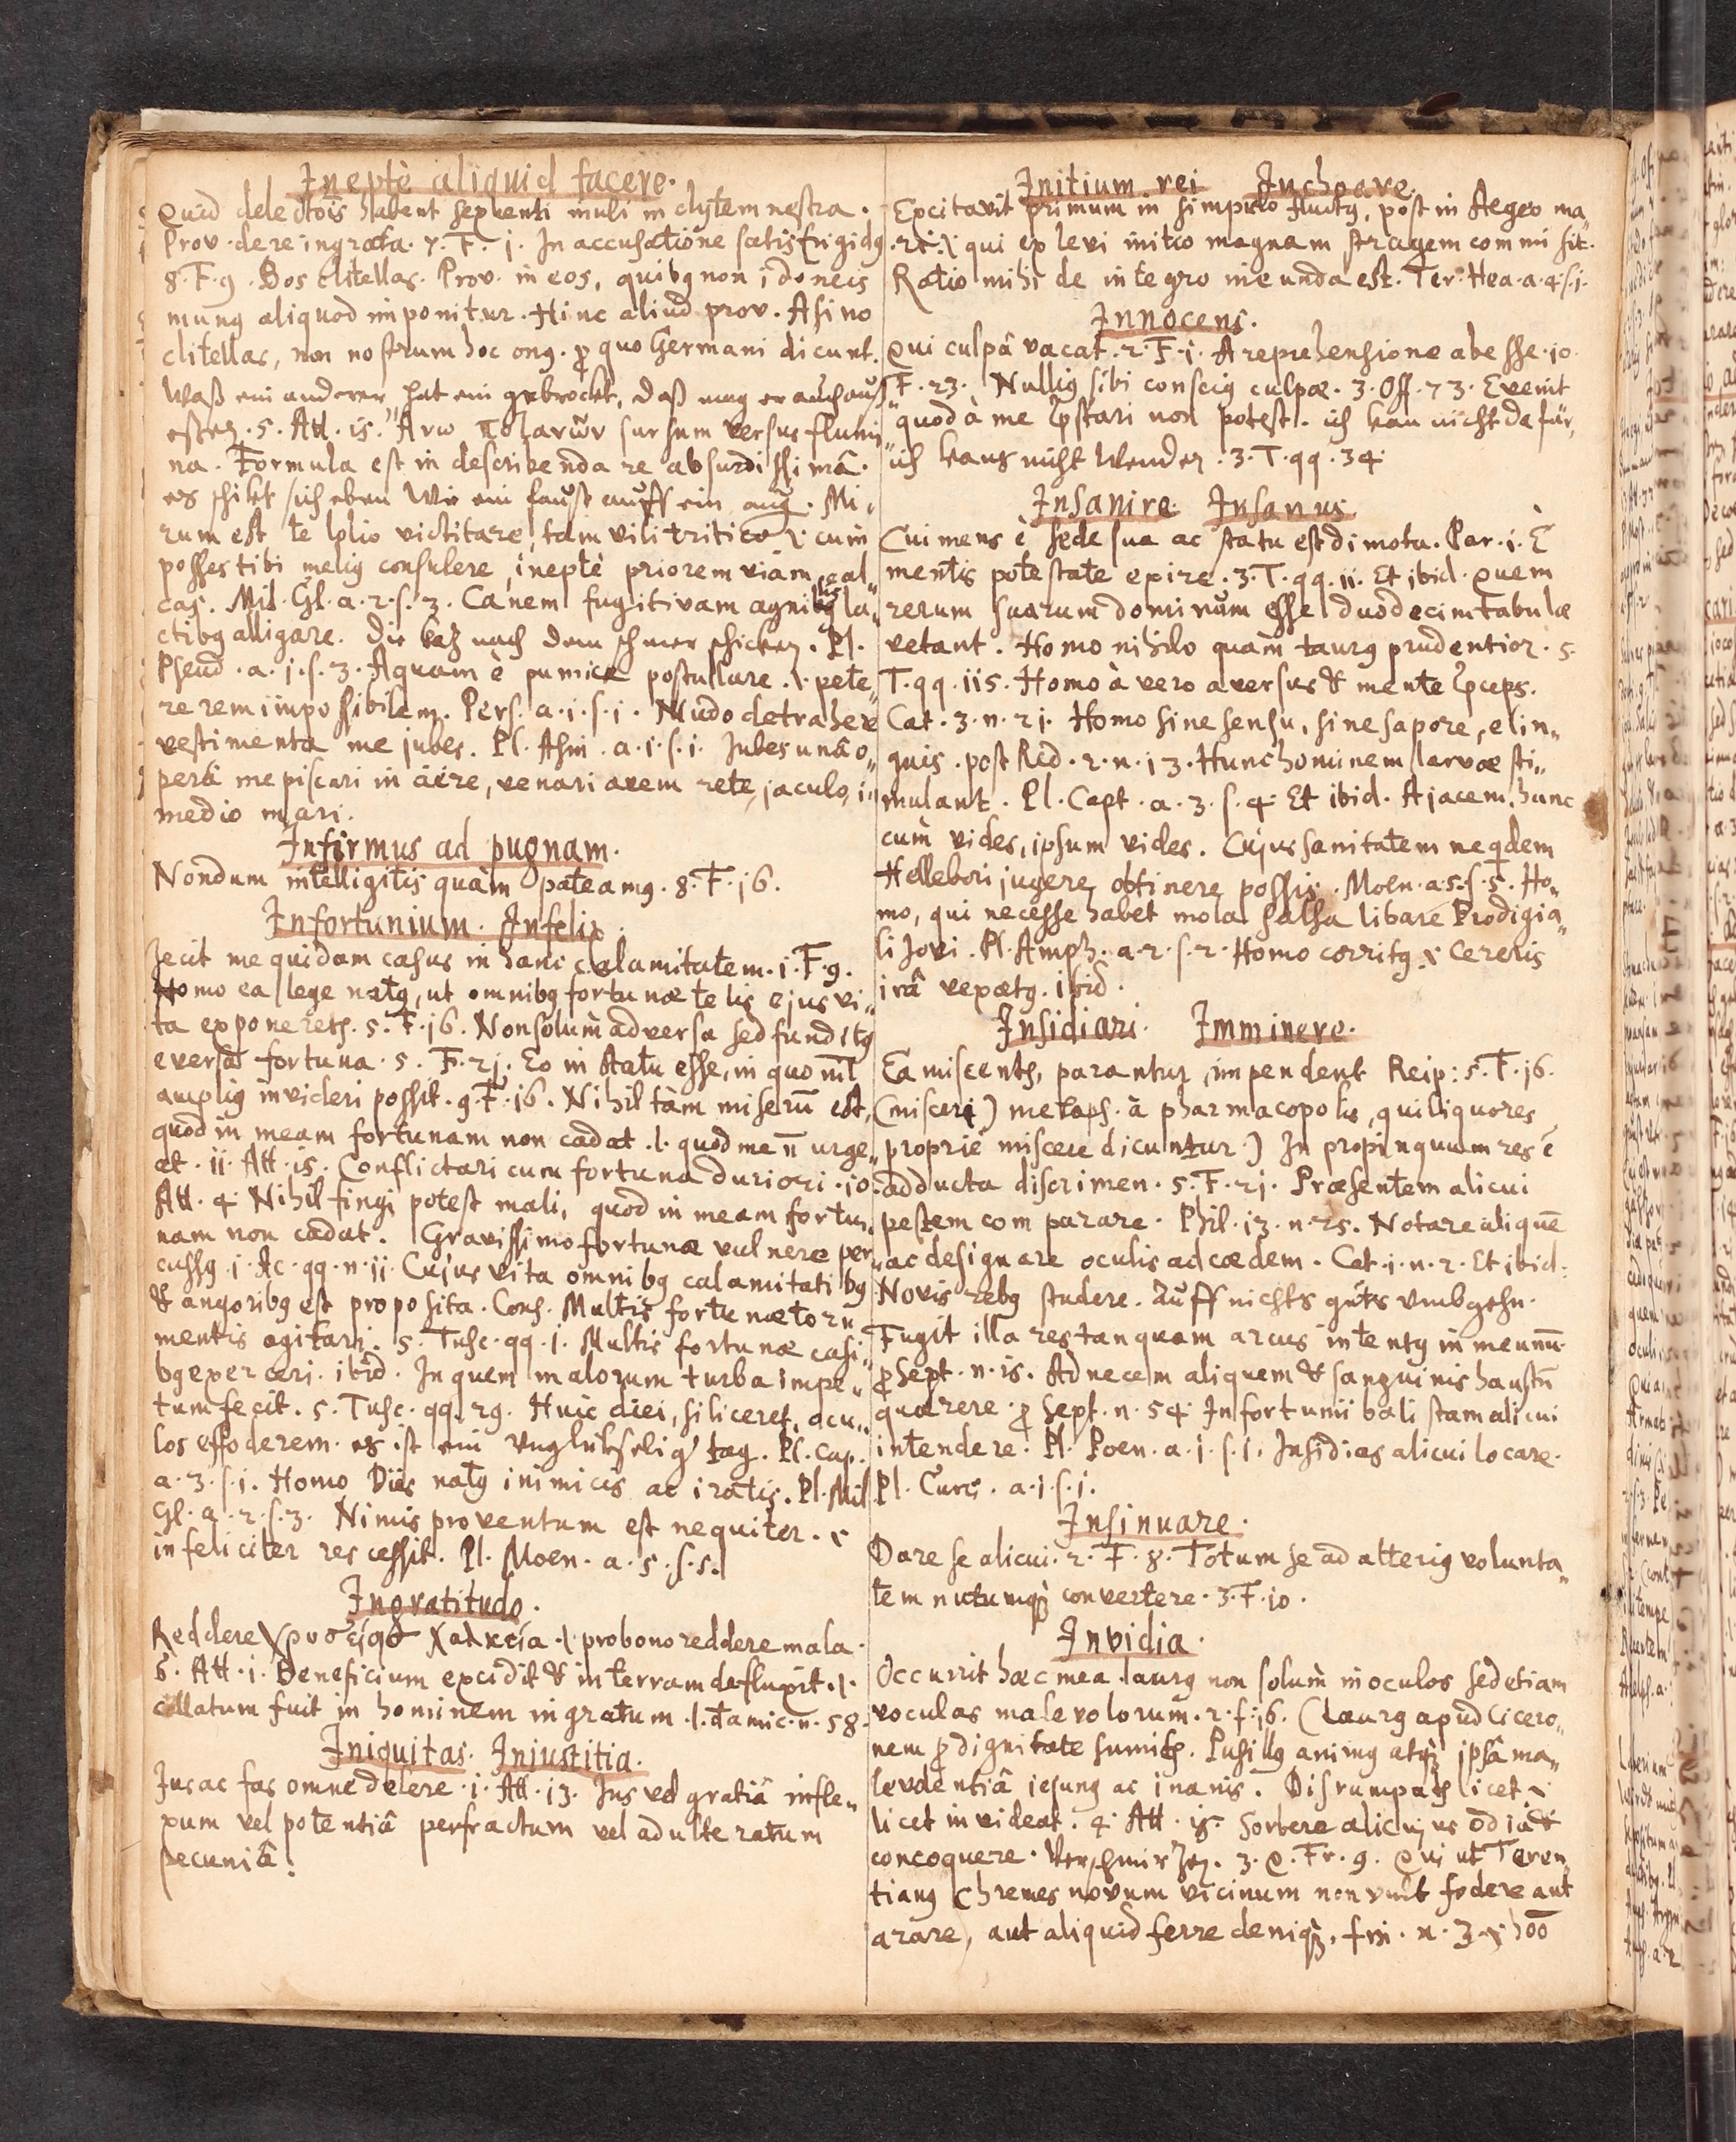 Ineptè aliquid facere.
Quid delectõis habent sexcenti muli in clytemnestra.
Prov. de re ingrata. 7. F. 1. In accusatione satis frigidꝰ
8. F. 9. Bos clitellas. Prov. in eos, quibꝰ non idoneis
munꝰ aliquod imponitur. Hinc aliud prov. Asino
clitellas, non nostrum hoc onꝰ. ꝓ quo Germani dicunt.
Waß ein anderer hat ein gebrockt, daß mag er auch auß
eßen. 5. Att. 15. Ἄνω ποταμῶν sursum versus flumi„
na. Formula est in describenda re absurdissimâ.
es schikt sich eben Wie ein faust auff ein aug. Mi„
rum est te lolio victitare, tam vili tritico .i. cum
posses tibi meliꝰ consulere, ineptè priorem viam cal„
cas. Mil. Gl. a. 2. s. 3. Canem fugitivam agnis la„
ctibꝰ alligare. Die katz nach dem schmer schicken. Pl.
Pseud. a. 1. s. 3. Aquam è pumice postullare .i. pete„
re rem impossibilem. Pers. a. 1. s. 1. Nudo detrahere
vestimenta me jubes. Pl. Asin. a. 1. s. 1. Jubes unâ o„
perâ me piscari in aëre, venari avem rete, jaculo, i„
medio mari.
Infirmus ad pugnam.
Nondum intelligitis quàm pateamꝰ. 8. F. 16.
Infortunium. Infelix.
Jecit me quidam casus in hanc calamitatem. 1. F. 9.
Homo ea lege natꝰ, ut omnibꝰ fortunæ telis ejus vi„
ta exponeretr. 5. F. 16. Non solum adversa sed funditꝰ
eversâ fortuna. 5. F. 21. Eo in statu esse, in quo nil
ampliꝰ invideri possit. 9. F. 16. Nihil tàm miserū est,
quod in meam fortunam non cadat .i. quod me n̄ urge„
at. 11. Att. 15. Conflictari cum fortuna duriori. 10.
Att. 4. Nihil fingi potest mali, quod in meam fortu„
nam non cadat. Gravissimo fortunæ vulnere per„
cussꝰ. 1. Ac. qq. n. 11. Cujus vita omnibꝰ calamitatibꝰ
& angoribꝰ est proposita. Cons. Multis fortunæ torū
mentis agitari. 5. Tusc. qq. 1. Multis fortunæ casi„
bꝰ exerceri. ibid. In quem malorum turba impe„
tum fecit. 5. Tusc. qq. 29. Huic diei, si liceret, ocu„
los effoderem. es ist ein unglükseliger tag. Pl. Cap.
a. 3. s. 1. Homo Diis natꝰ inimicis ac iratis. Pl. Mil
Gl. a. 2. s. 3. Nimis proventum est nequiter. .i.
infeliciter res cessit. Pl. Moen. a. 5. s. 5.
Ingratitudo.
Reddere χρυσείων χαλκεία .i. pro bono reddere mala.
6. Att. 1. Beneficium excidit & in terram defluxit .i.
collatum fuit in hominem ingratum .l. d amic. n. 58.
Iniquitas. Injustitia.
Jus ac fas omne delere. 1. Att. 13. Jus vel gratiâ infle„
xum vel potentiâ perfractum vel adulteratum
pecuniâ.
Initium rei Inchoare.
Excitavit primum in simpulo fluctꝰ, post in Aegeo ma„
ri .i. qui ex levi initio magnam stragem commisit.
Ratio mihi de integro ineunda est. Ter. Hea. a. 4. s. 1.
Innocens.
Qui culpâ vacat. 2. F. 1. A reprehensione abesse. 10.
F. 23. Nulliꝰ sibi consciꝰ culpæ. 3. Off. 73. Evenit
quod à me præstari non potest. ich kan nicht dafür,
ich kans nicht Wenden. 3. T. qq. 34.
Insanire. Insanus.
Cui mens è sede sua ac statu est dimota. Par. 1. È
mentis potestate exire. 3. T. qq. 11. Et ibid. Quem
rerum suarum dominum esse duodecim tabulæ
vetant. Homo nihilo quàm taurꝰ prudentior. 5.
T. qq. 115. Homo à vero aversus & mente præceps.
Cat. 3. n. 21. Homo sine sensu, sine sapore, elin„
guis. post Red. 2. n. 13. Hunc hominem larvæ sti„
mulant. Pl. Capt. a. 3. s. 4. Et ibid. Ajacem, hunc
cum vides, ipsum vides. Cujus sanitatem neqdem
Hellebori jugere obtinere possis. Moen. a. 5. s. 5. Ho„
mo, qui necesse habet mola salsa libare Prodigia„
li Jovi. Pl. Amph. a. 2. s. 2. Homo corritꝰ .i. Cereris
irâ vexatꝰ. ibid.
Insidiari. Imminere.
Ea miscentr, parantur, impendent Reip: 5. F. 16.
(misceri) metaph. à pharmacopolis, qui liquores
proprie miscere dicuntur.) In propinquum res ē
adducta discrimen. 5. F. 21. Præsentem alicui
pestem comparare. Phil. 13. n. 25. Notare aliquē
ac designare oculis ad cædem. Cat. 1. n. 2. Et ibid:
Novis rebꝰ studere. Auff nichts guts umbgehn.
Fugit illa res tanquam arcus intentꝰ in me unū.
ꝓ Sext. n. 15. Ad necem aliquem & sanguinis haustū
quærere. ꝓ Sext. n. 54. Infortunii balistam alicui
intendere. Pl. Poen. a. 1. s. 1. Insidias alicui locare.
Pl. Curc. a. 1. s. 1.
Insinuare.
Dare se alicui. 2. F. 8. Totum se ad alteriꝰ volunta„
tem nutumqꝫ convertere. 3. F. 10.
Invidia.
Occurrit hæc mea laurꝰ non solùm in oculos sed etiam
voculas malevolorum. 2. f. 16. (Laurꝰ apud Cicero„
nem ꝓ dignitate sumitr. Pusillꝰ animꝰ atqꝫ ipsâ ma„
levolentiâ iejunꝰ ac inanis. Disrumpatr licet .i.
licet invideat. 4. Att. 15. Sorbere alicujus odia &
concoquere. 3. Q. Fr. 9. Qui ut Teren„
tianꝰ Chremes novum vicinum non vult fodere aut
arare, aut aliquid ferre deniqꝫ. fin. n. 3